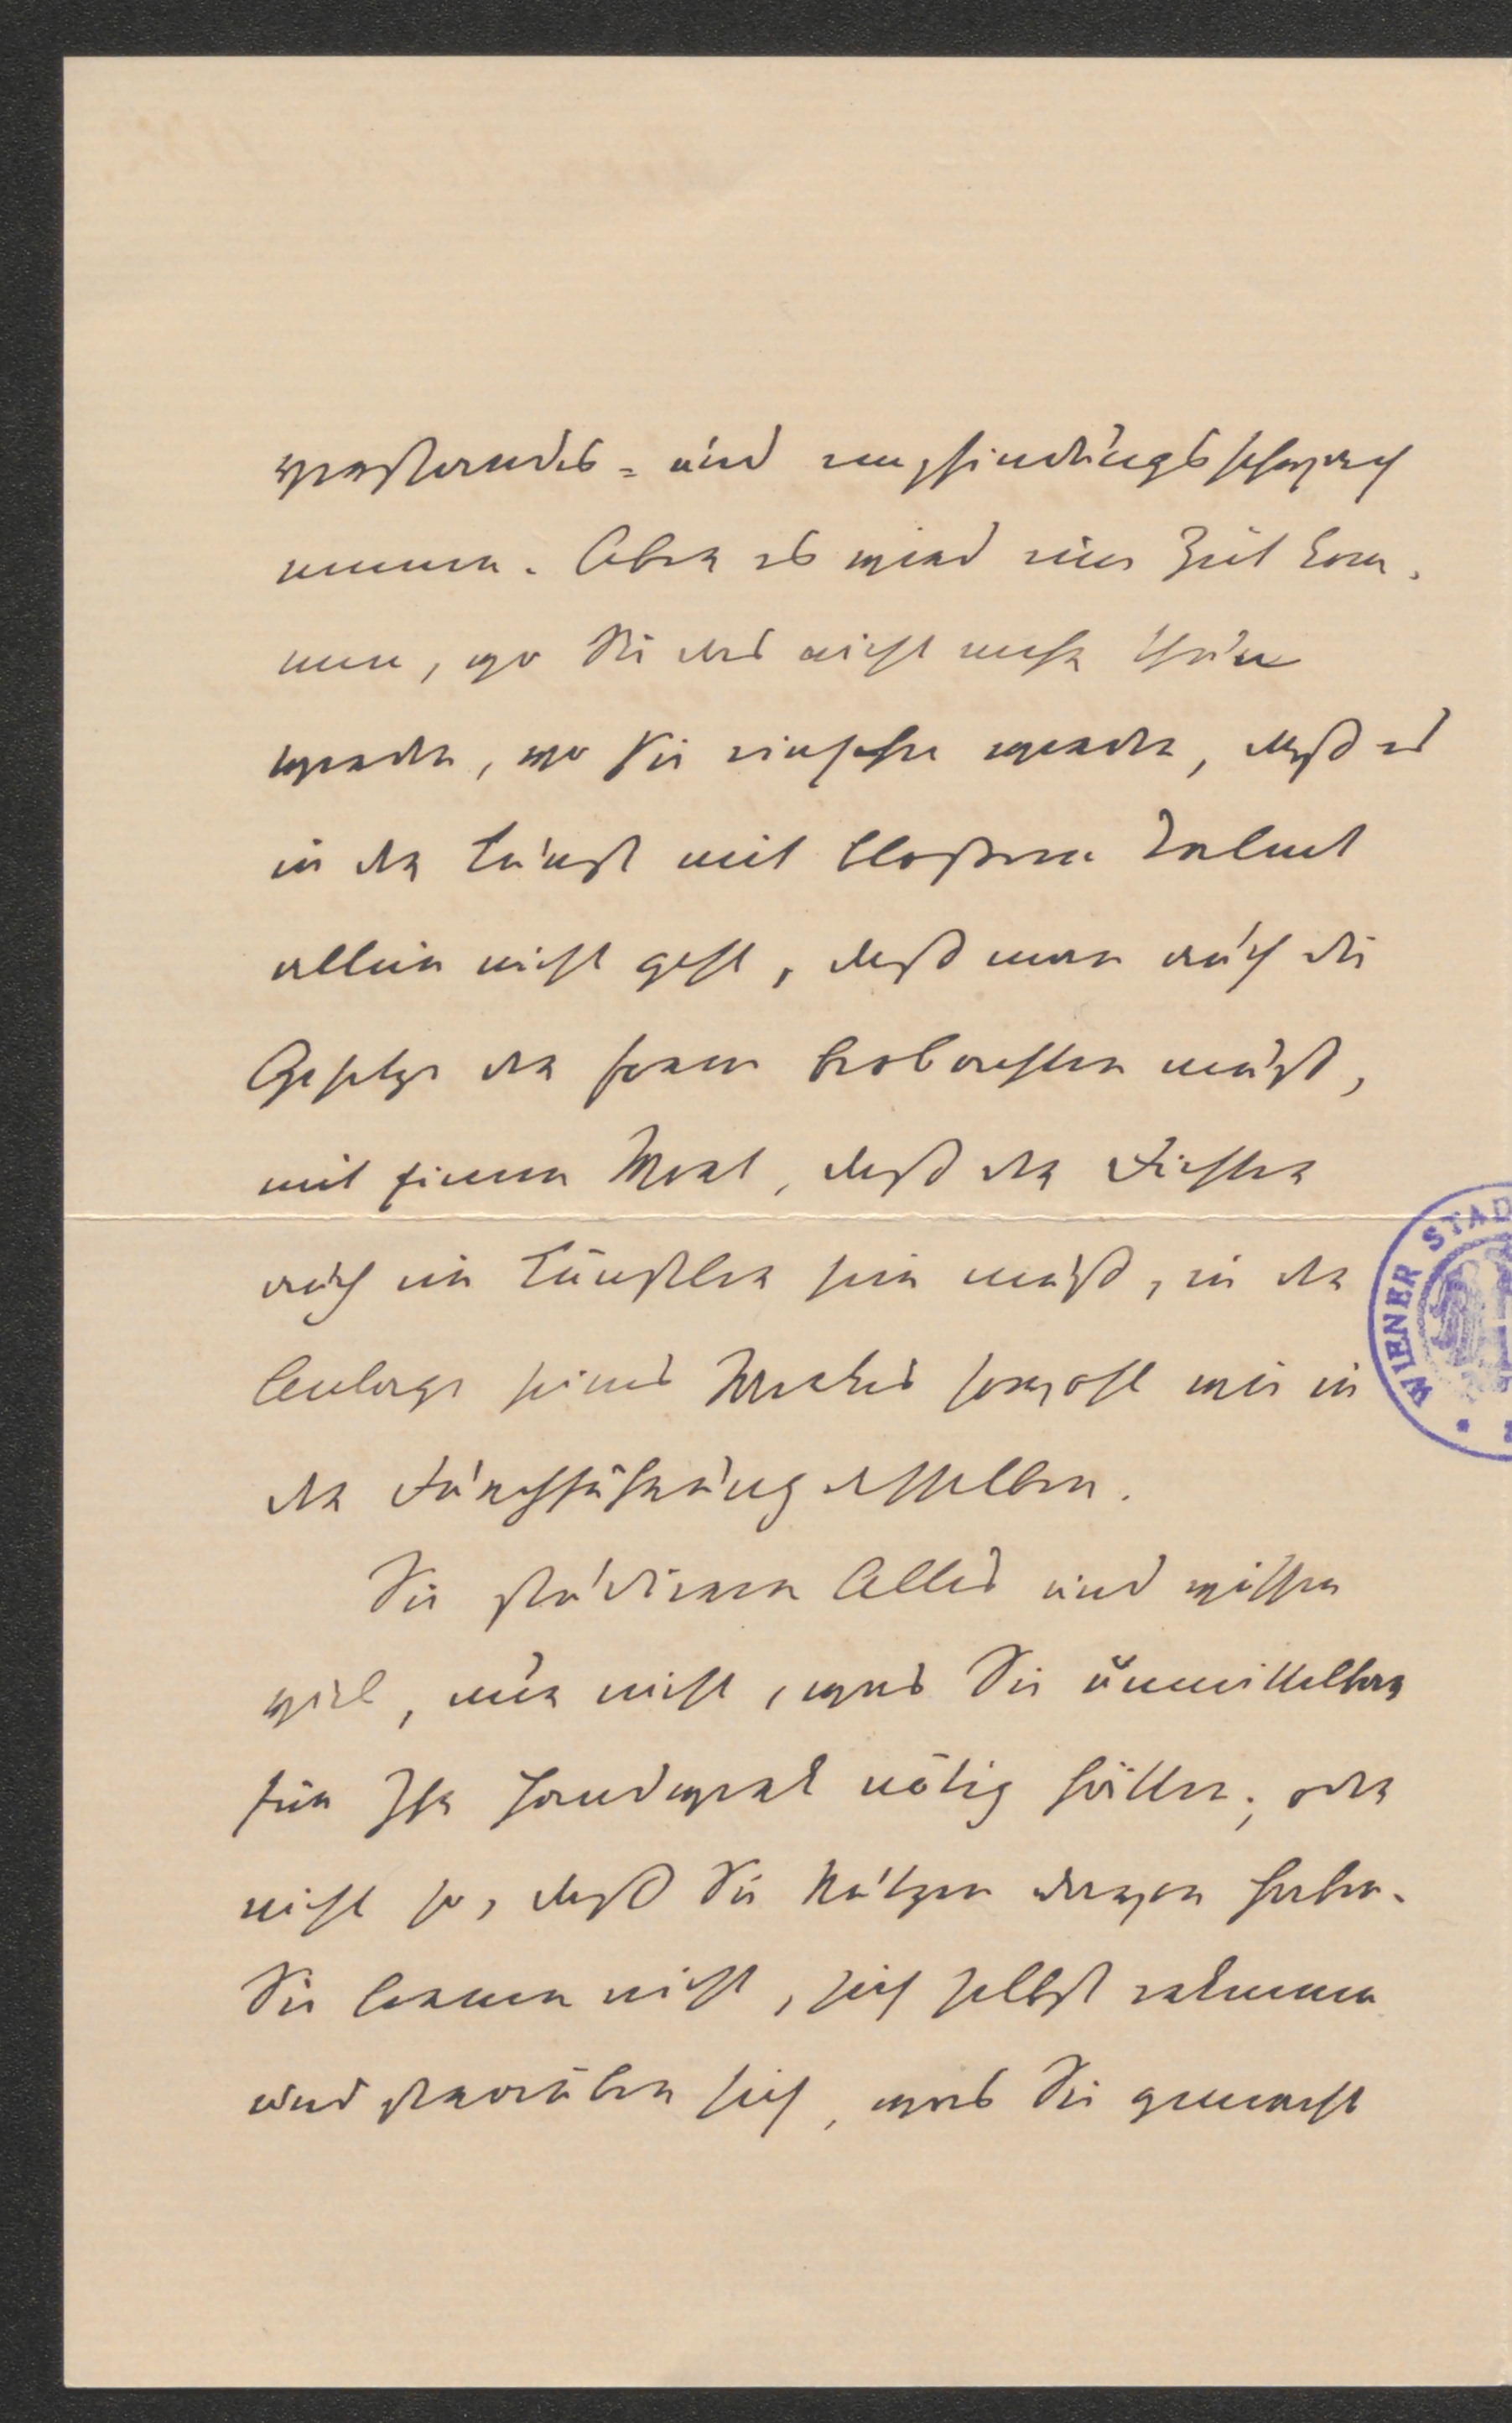 verstandes- und empfindungsschwach
nennen. Aber es wird eine Zeit kom-
men, wo Sie das nicht mehr thun
werden, wo Sie einsehen werden, daß es
in der Kunst mit bloßem Talent
allein nicht geht, daß man auch die
Gesetze der Form beobachten muß,
mit einem Wort, daß der Dichter
auch ein Künstler sein muß, in der
Anlage seines Werkes sowohl wie in
der Durchführung desselben.
Sie studieren Alles und wissen
viel, nur nicht, was Sie unmittelbar
für Ihr Handwerk nötig hätten; oder
nicht so, daß Sie Nutzen davon haben.
Sie lernen nicht, sich selbst erkennen
und sträuben sich, was Sie gemacht
WIENER STAD